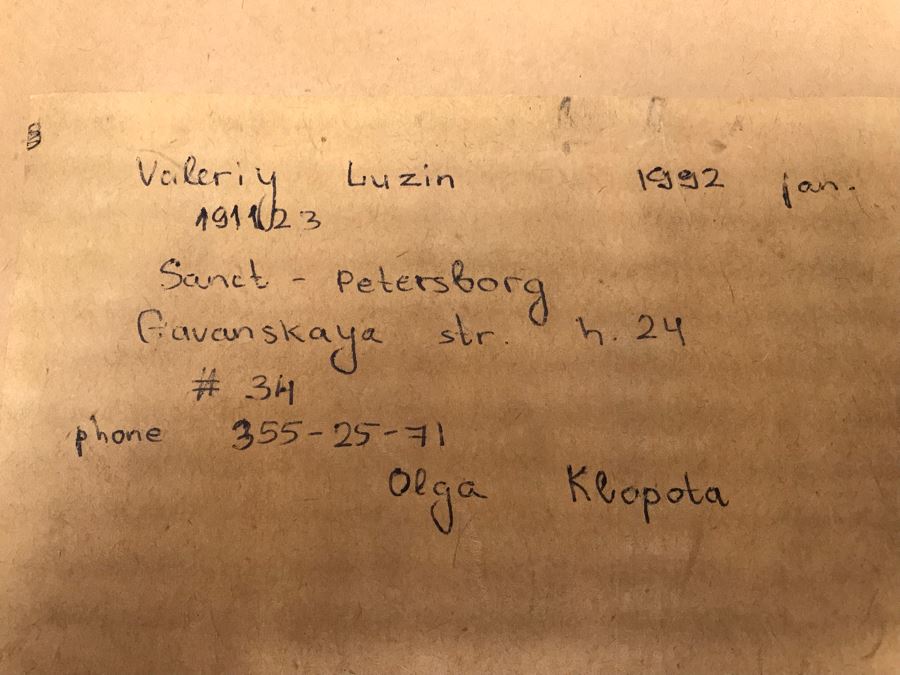 Valeriy Luzin 1992 jan.
Sanct - Petersborg
Gavanskaya str. h. 24
# 34
phone 355-25-71
Olga Klopota